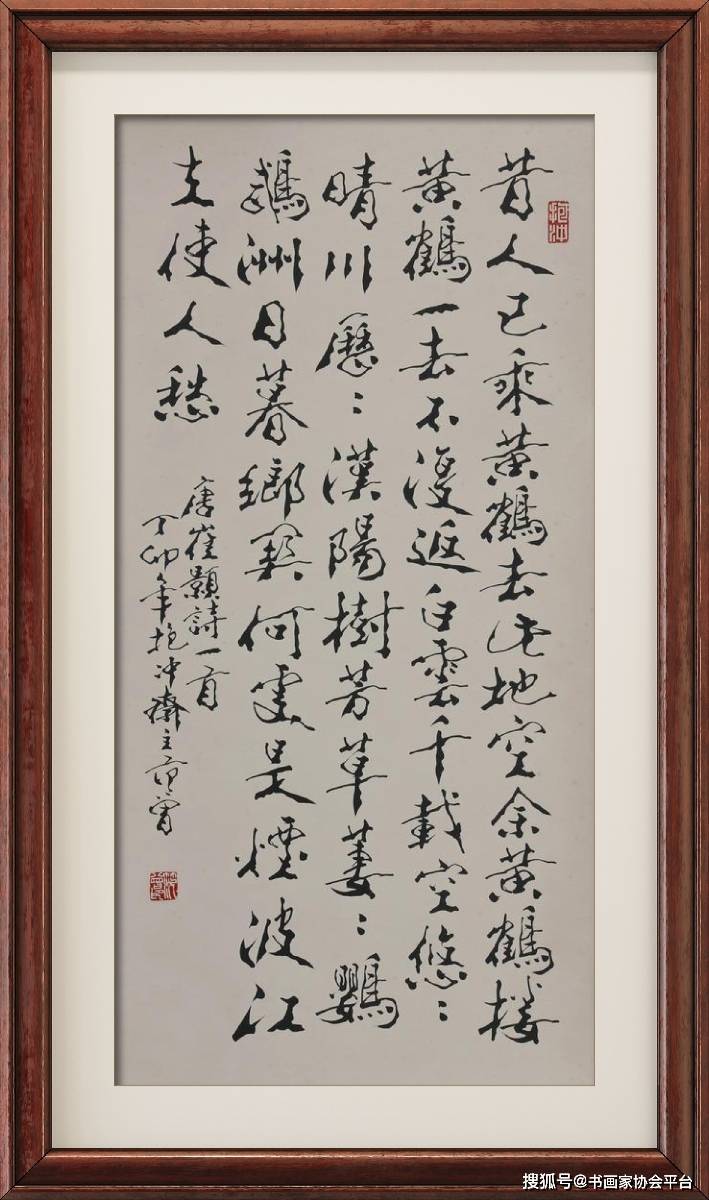 抱冲
昔人已乘黄鶴去此地空余黄鶴楼
黄鶴一去不復返白雲千載空悠〻
晴川歷〻漢陽樹芳草萋〻鸚
鵡洲日暮鄉関何處是煙波江
上使人愁
唐崔顥詩一首
丁卯年抱冲齋主范曾
范曾
搜狐号@书画家协会平台